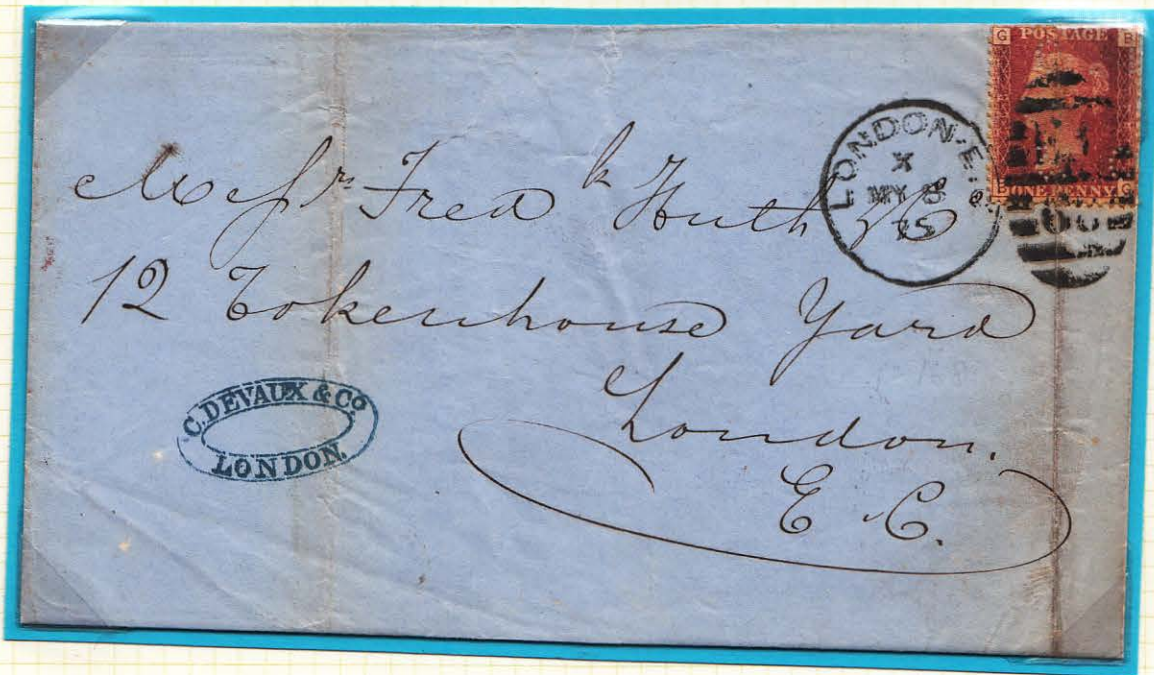 G POSTAGE B
B ONE PENNY G
LONDON·E·C
X
MY 8
75
Messrs Fredk Huth & Co
12 Tokenhouse Yard
London.
E.C.
C. DEVAUX & Co
LONDON.